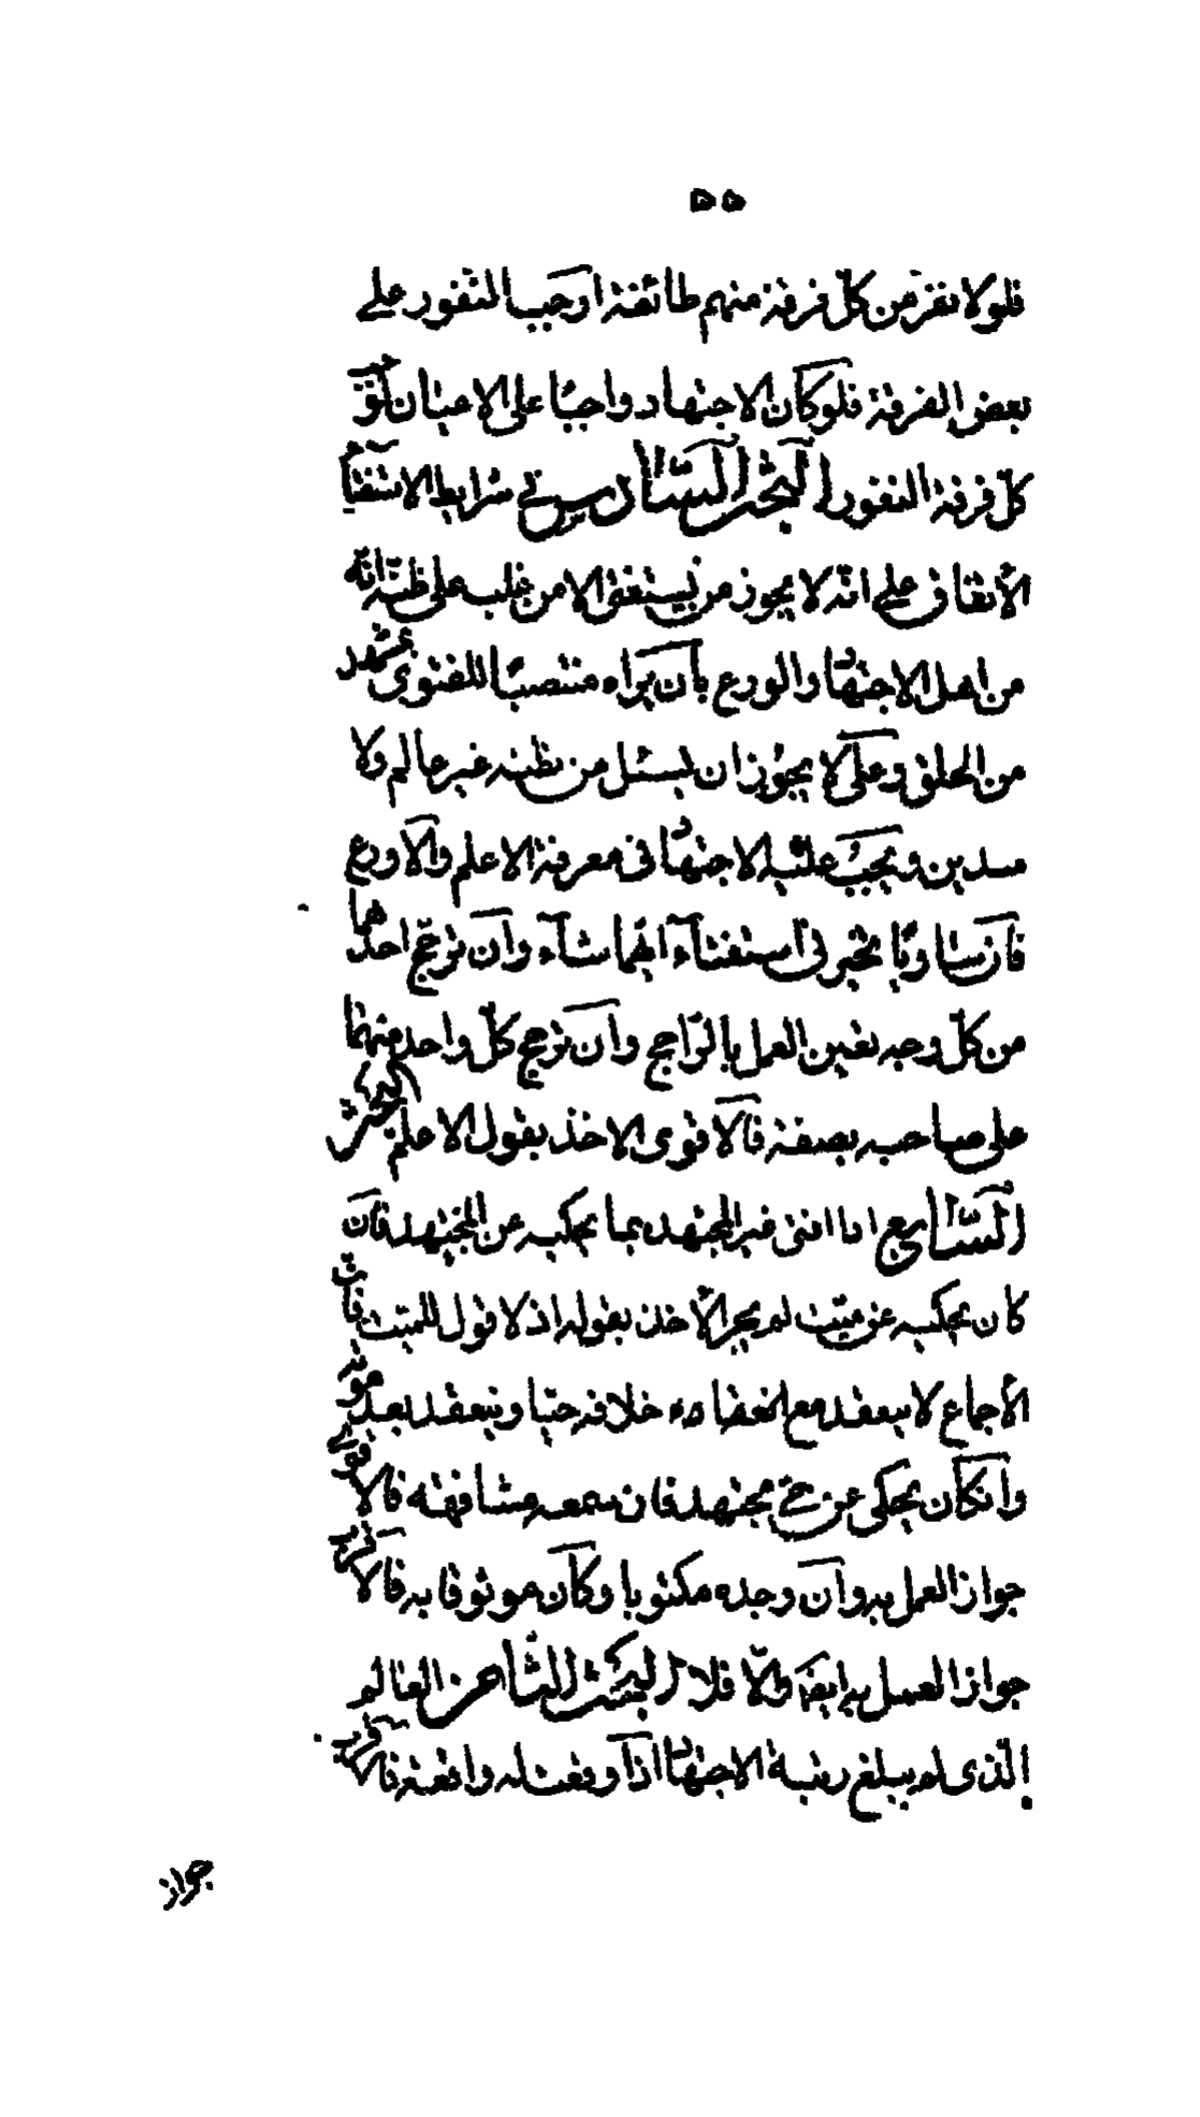 ٥٥
فلولا نفر من كلّ فرقة منهم طائفة اوجب النفور على
بعض الفرقة فلو كان الاجتهاد واجبًا على الاعيان لوجب على
كلّ فرقة النفور البحث السّادس في شرايط الاستفتاء
الأتفاق على انّه لا يجوز من يستفتى الا من غلب على ظنّه انّه
من اهل الاجتهاد والورع بأن يراه منتصبًا للفتوى بمشهد
من الخلق وعلى لا يجوز ان يسئل من يظنه غير عالم ولا
متدين ويجب عليه الاجتهاد فى معرفة الاعلم والاورع
فان تساويا تخير فى استفتاء ايّهما شاء وان ترجّح احدهما
من كلّ وجه تعين العمل بالرّاجح وان ترجح كلّ واحد منهما
على صاحبه بصفة فالاقوى الاخذ بقول الاعلم البحث
السّابع اذا افتى غير المجتهد بما يحكيه عن المجتهد فان
كان يحكيه عن ميّت لم يجز الأخذ بقوله اذ لا قول للميّت فان
الأجماع لا ينعقد مع خلافه حيّا وينعقد بعد موته
وان كان يحكى عن حىّ مجتهد فان سمعه مشافهة فالاقوى
جواز العمل به وان وجده مكتوبا وكان موثوقا به فالاقرب
جواز العمل به ايضا والّا فلا البحث الثامن العالم
الّذى لم يبلغ رتبة الاجتهاد اذا وقعت له واقعة فالاقرب
جواز